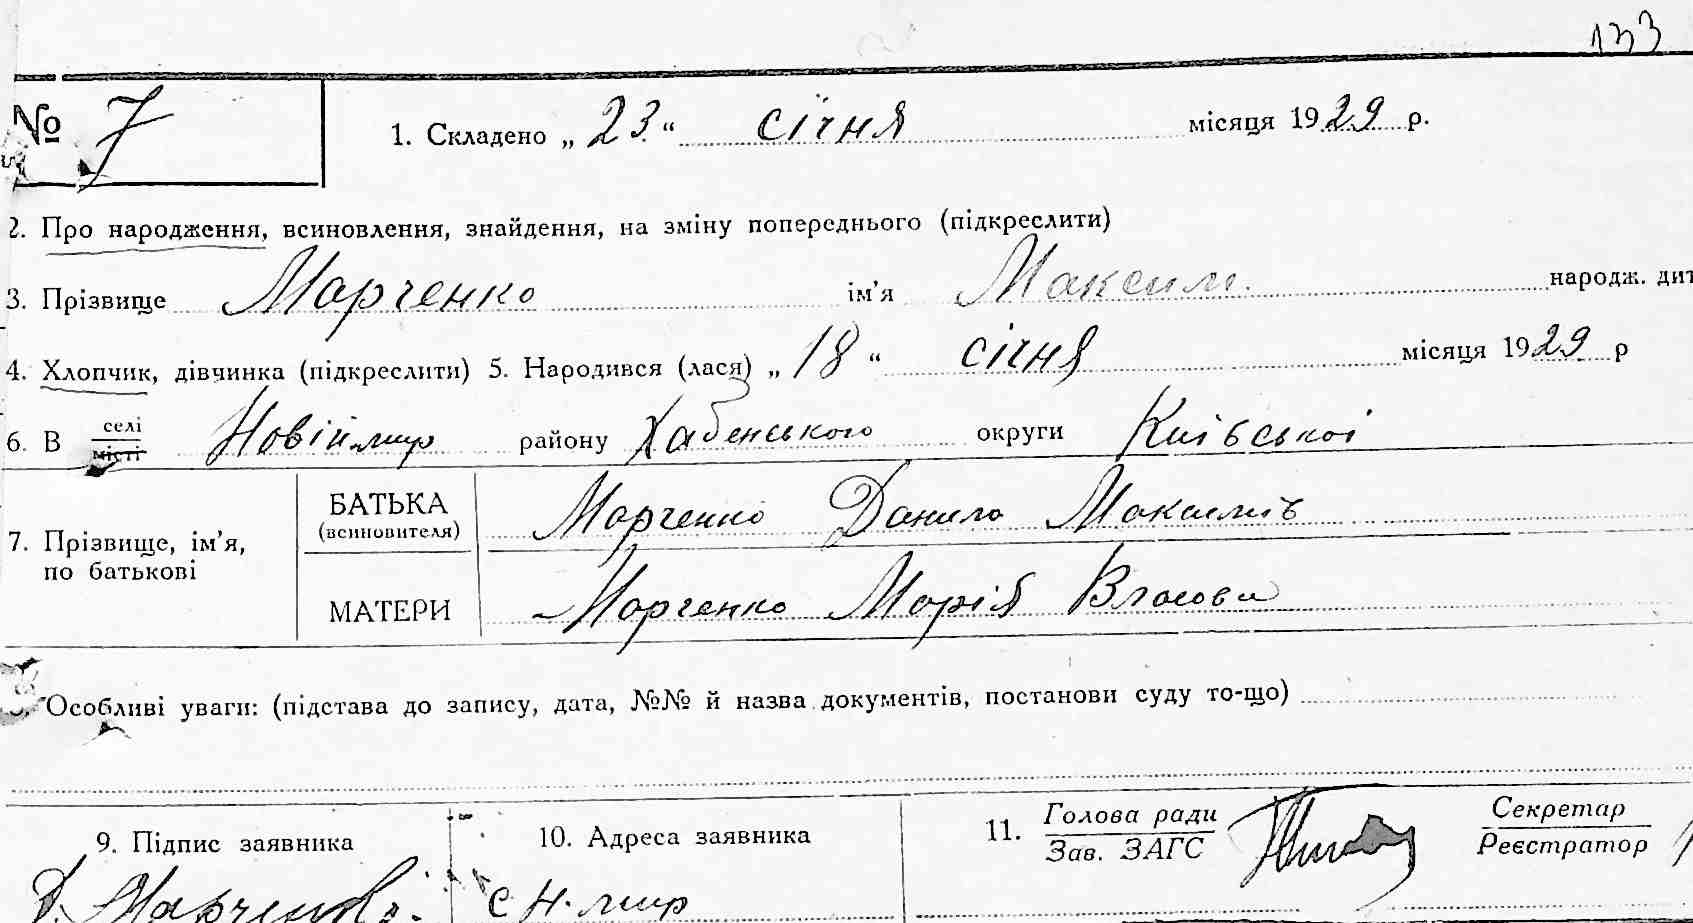 133
№ 7
1. Складено „ 23 “ січня місяця 1929 р.
2. Про народження, всиновлення, знайдення, на зміну попереднього (підкреслити)
3. Прізвище Марченко ім’я Максим. народж. дит
4. Хлопчик, дівчинка (підкреслити) 5. Народився (лася) „ 18 “ січня місяця 1929 р
6. В селі місті Новій-мир району Хабенського округи Київської
7. Прізвище, ім’я, по батькові
БАТЬКА (всиновителя) Марченко Данило Максимів
МАТЕРИ Марченко Марія Власова
Особливі уваги: (підстава до запису, дата, №№ й назва документів, постанови суду то-що)
9. Підпис заявника
10. Адреса заявника
11. Голова ради
Зав. ЗАГС
Секретар
Реєстратор
Д. Марченко
с Н. мир